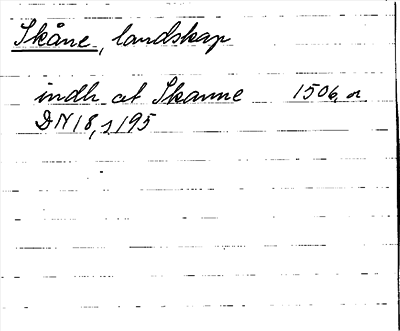 Skåne, landskap
indh at Skanne 1506, or
DN 18, s 195